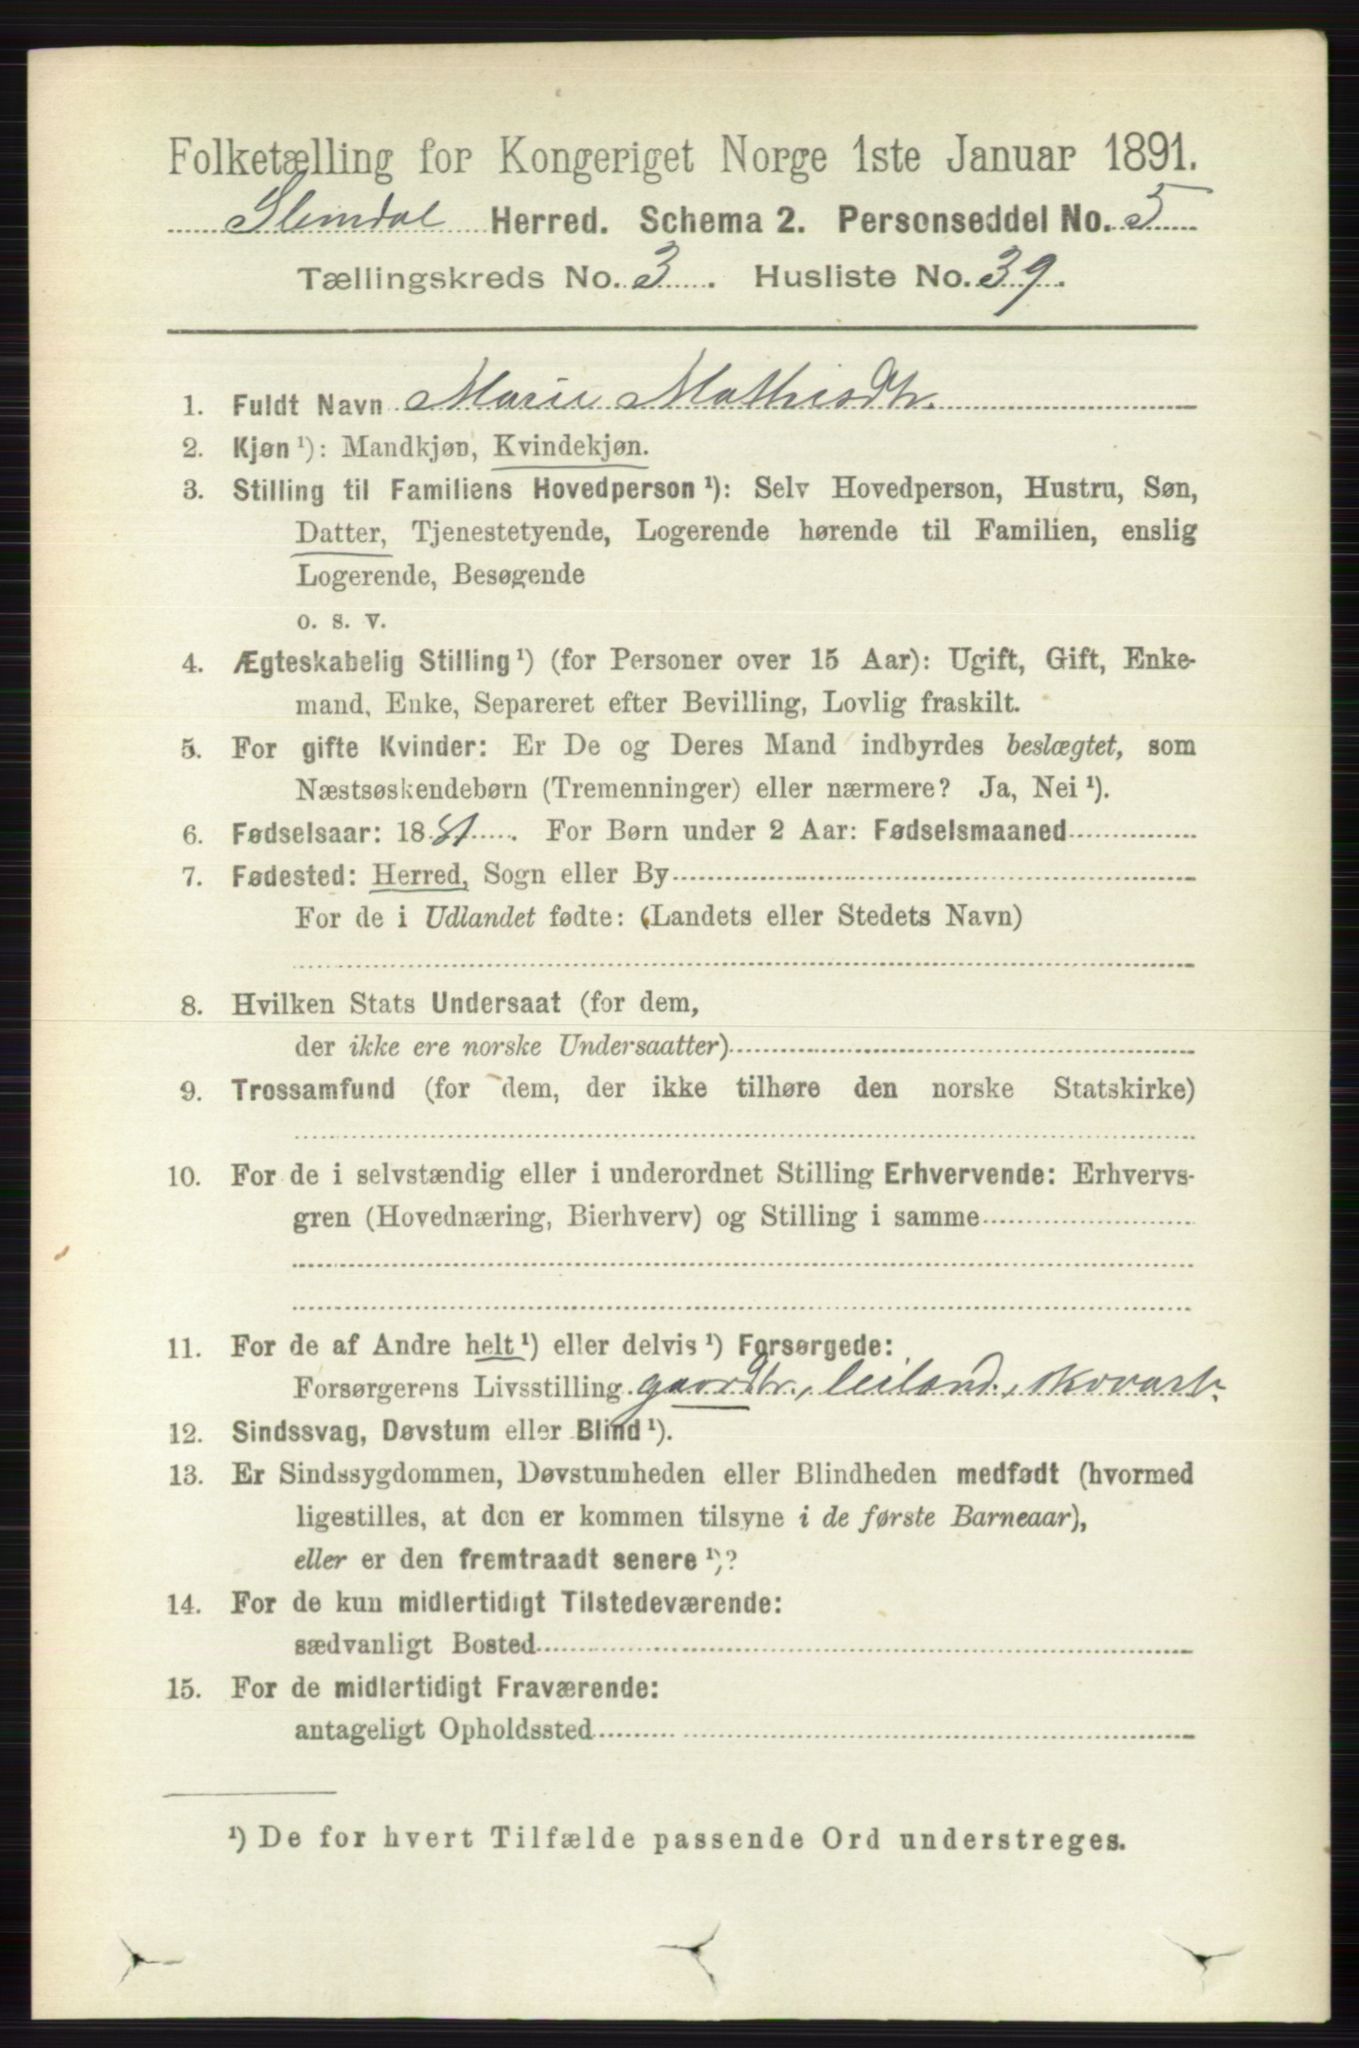 Folketælling for Kongeriget Norge 1ste Januar 1891.
Slemdal Herred. Schema 2. Personseddel No. 5
Tællingskreds No. 3. Husliste No. 39.
1. Fuldt Navn Marie Mathisdtr.
2. Kjøn ¹): Mandkjøn, Kvindekjøn.
3. Stilling til Familiens Hovedperson ¹): Selv Hovedperson, Hustru, Søn,
Datter, Tjenestetyende, Logerende hørende til Familien, enslig
Logerende, Besøgende
o. s. v.
4. Ægteskabelig Stilling ¹) (for Personer over 15 Aar): Ugift, Gift, Enke-
mand, Enke, Separeret efter Bevilling, Lovlig fraskilt.
5. For gifte Kvinder: Er De og Deres Mand indbyrdes beslægtet, som
Næstsøskendebørn (Tremenninger) eller nærmere? Ja, Nei ¹).
6. Fødselsaar: 1881. For Børn under 2 Aar: Fødselsmaaned
7. Fødested: Herred, Sogn eller By
For de i Udlandet fødte: (Landets eller Stedets Navn)
8. Hvilken Stats Undersaat (for dem,
der ikke ere norske Undersaatter)
9. Trossamfund (for dem, der ikke tilhøre den norske Statskirke)
10. For de i selvstændig eller i underordnet Stilling Erhvervende: Erhvervs-
gren (Hovednæring, Bierhverv) og Stilling i samme
11. For de af Andre helt ¹) eller delvis ¹) Forsørgede:
Forsørgerens Livsstilling gaardbr., leiland.,
12. Sindssvag, Døvstum eller Blind ¹).
13. Er Sindssygdommen, Døvstumheden eller Blindheden medfødt (hvormed
ligestilles, at den er kommen tilsyne i de første Barneaar),
eller er den fremtraadt senere ¹)?
14. For de kun midlertidigt Tilstedeværende:
sædvanligt Bosted
15. For de midlertidigt Fraværende:
antageligt Opholdssted
¹) De for hvert Tilfælde passende Ord understreges.